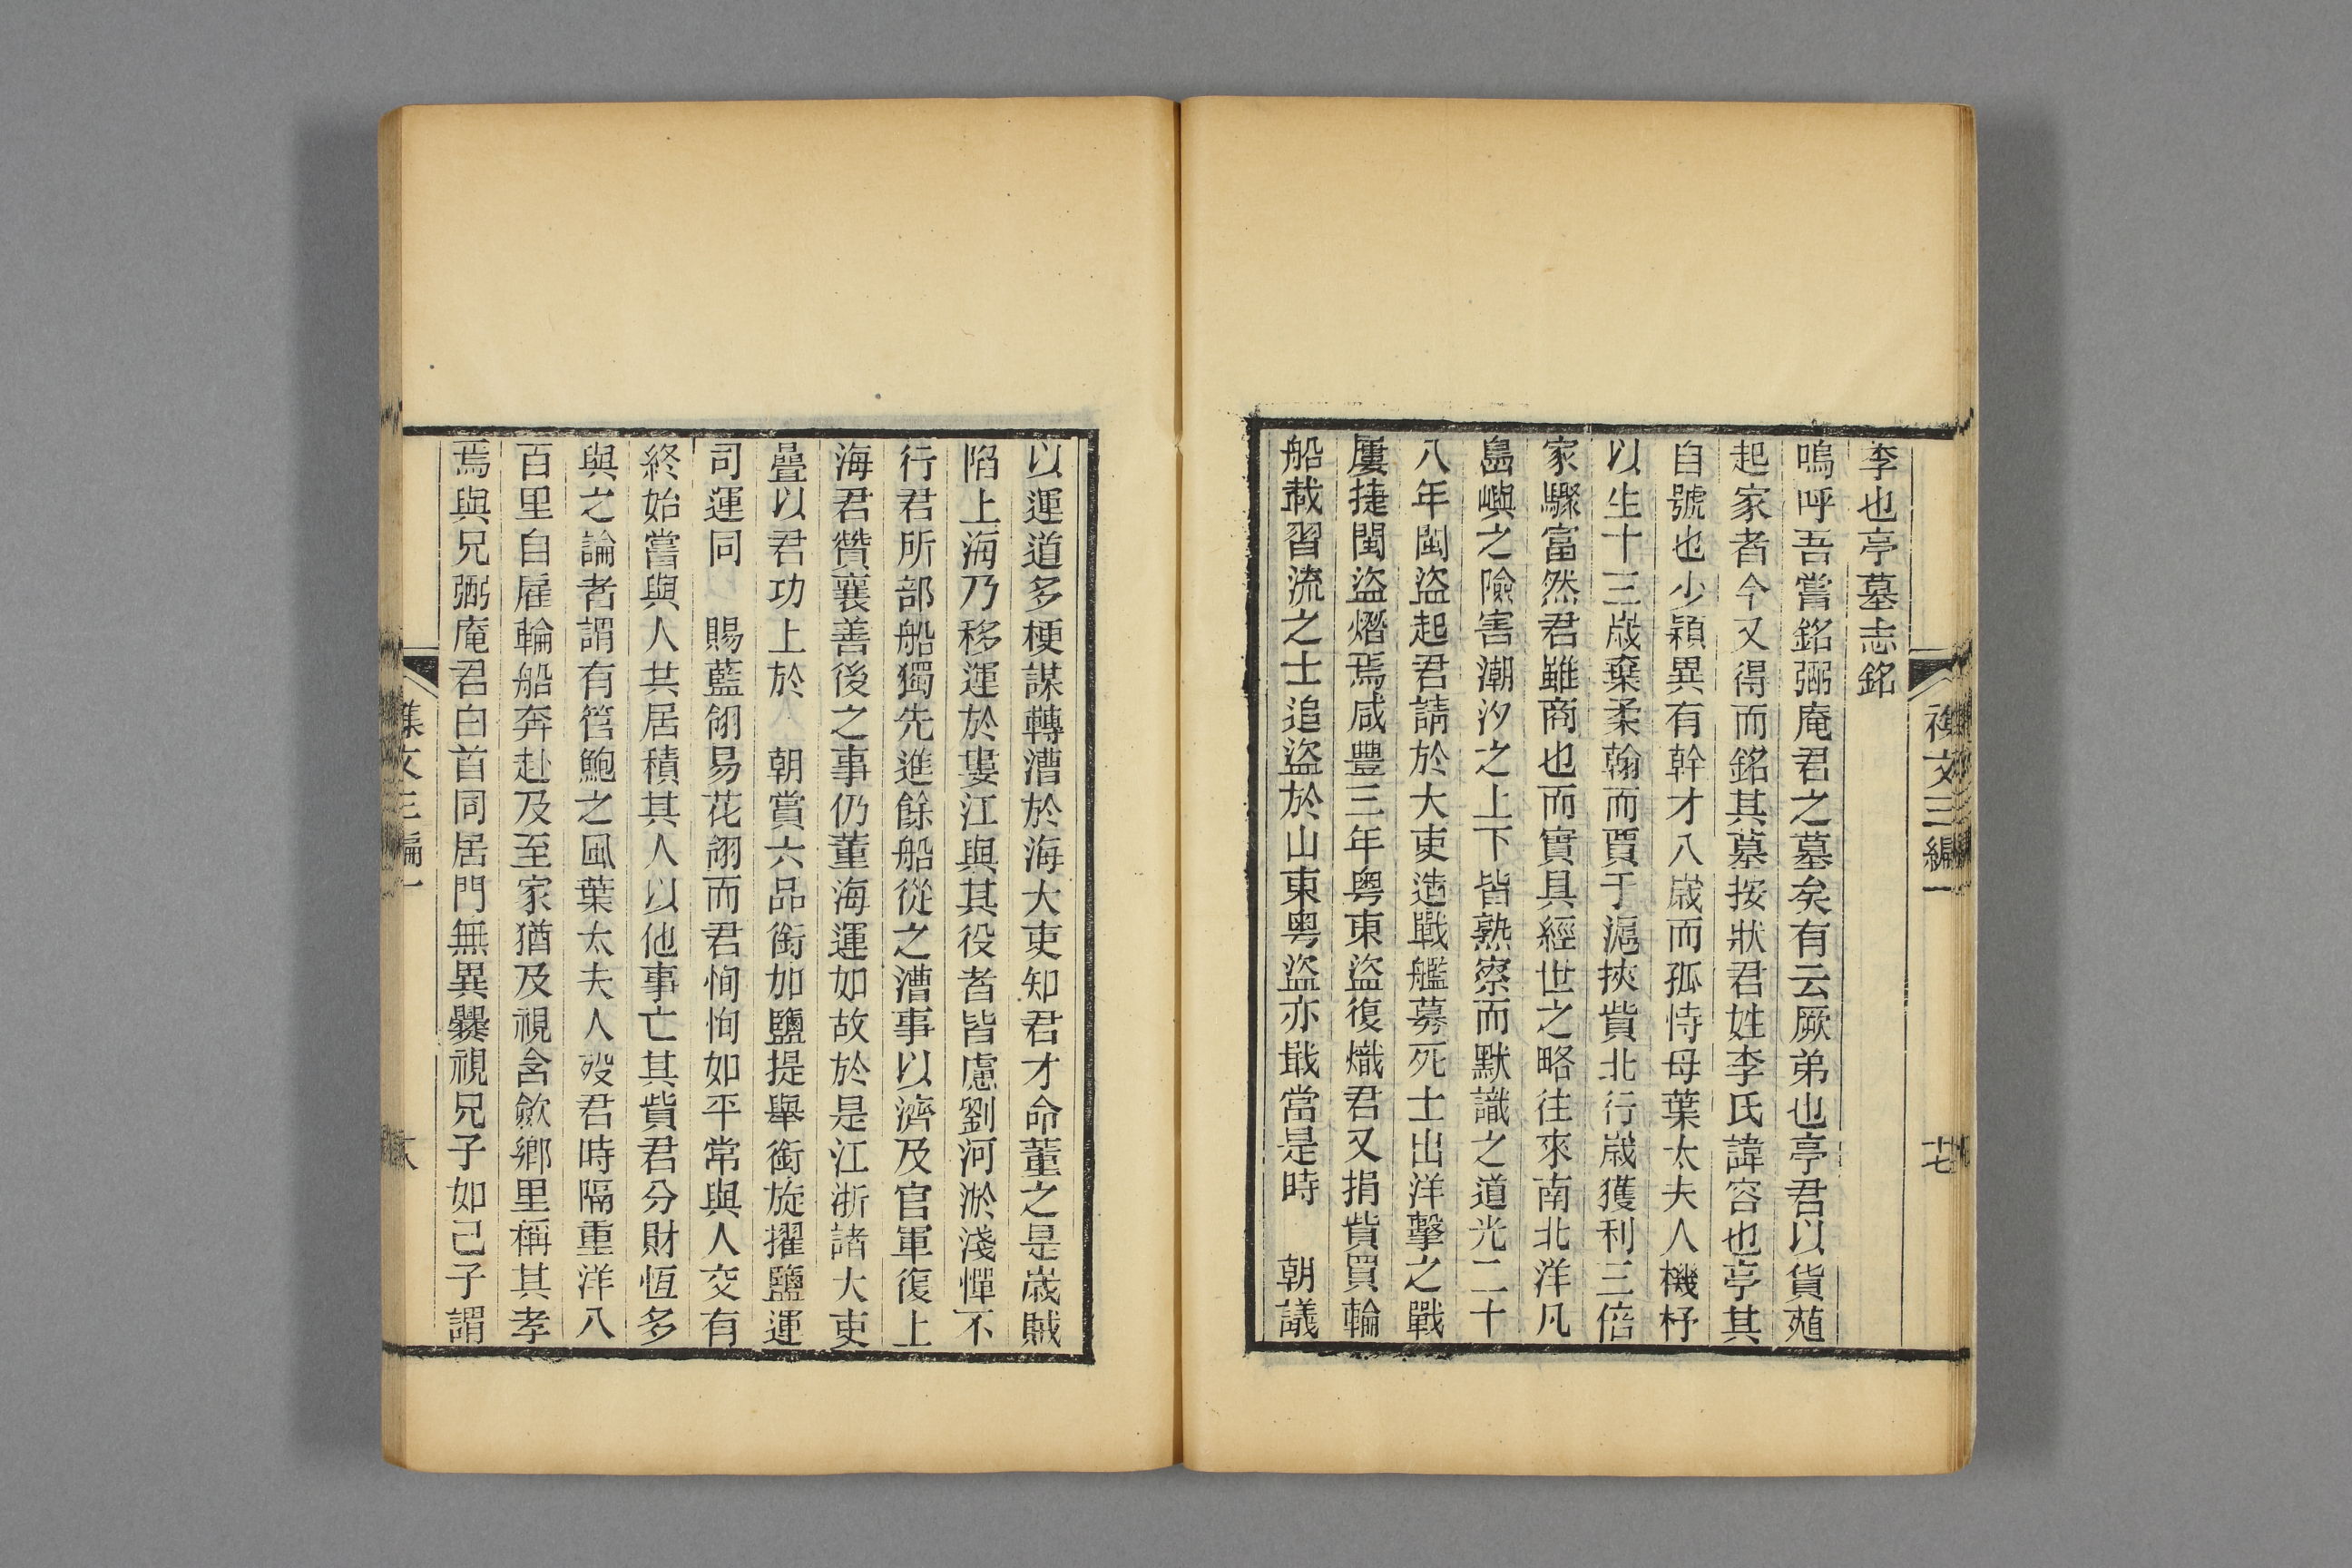 李也亭墓志銘
嗚呼吾嘗銘弼庵君之墓矣有云厥弟也亭君以貨殖
起家者今又得而銘其墓按狀君姓李氏諱容也亭其
自號也少穎異有幹才八歲而孤恃母葉太夫人機杼
以生十三歲棄柔翰而賈于滬挾貲北行歲獲利三倍
家驟富然君雖商也而實具經世之略往來南北洋凡
島嶼之險害潮汐之上下皆熟察而默識之道光二十
八年閩盜起君請於大吏造戰艦募死士出洋擊之戰
屢捷閩盜熸焉咸豐三年粵東盜復熾君又捐貲買輪
船載習流之士追盜於山東粵盜亦戢當是時　朝議
以運道多梗謀轉漕於海大吏知君才命董之是歲賊
陷上海乃移運於婁江與其役者皆慮劉河淤淺憚不
行君所部船獨先進餘船從之漕事以濟及官軍復上
海君贊襄善後之事仍董海運如故於是江浙諸大吏
疊以君功上於　朝賞六品銜加鹽提舉銜旋擢鹽運
司運同　賜藍翎易花翎而君恂恂如平常與人交有
終始嘗與人共居積其人以他事亡其貲君分財恆多
與之論者謂有管鮑之風葉太夫人歿君時隔重洋八
百里自雇輪船奔赴及至家猶及視含歛鄉里稱其孝
焉與兄弼庵君白首同居門無異爨視兄子如己子謂
文三編一
十七
文三編一